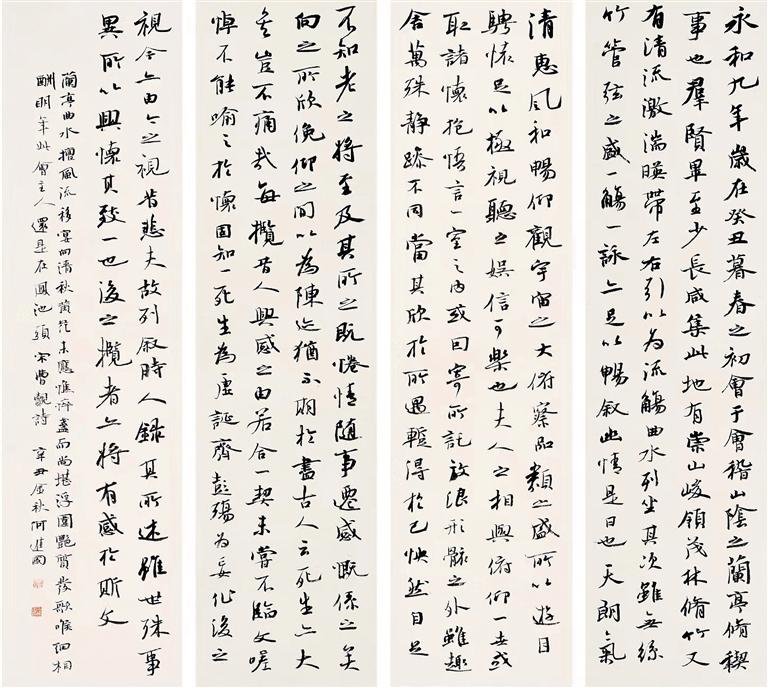 永和九年歲在癸丑暮春之初會于會稽山陰之蘭亭脩稧
事也羣賢畢至少長咸集此地有崇山峻領茂林脩竹又
有清流激湍暎帶左右引以為流觴曲水列坐其次雖無絲
竹管弦之盛一觴一詠亦足以暢叙幽情是日也天朗氣
清惠風和暢仰觀宇宙之大俯察品類之盛所以遊目
騁懷足以極視聽之娛信可樂也夫人之相與俯仰一世或
取諸懷抱悟言一室之內或因寄所託放浪形骸之外雖趣
舍萬殊靜躁不同當其欣於所遇蹔得於己怏然自足
不知老之將至及其所之既惓情隨事遷感慨係之矣
向之所欣俛仰之間以為陳迹猶不期於盡古人云死生亦大
矣豈不痛哉每攬昔人興感之由若合一契未嘗不臨文嗟
悼不能喻之於懷固知一死生為虛誕齊彭殤為妄作後之
視今亦由今之視昔悲夫故列叙時人錄其所述雖世殊事
異所以興懷其致一也後之攬者亦將有感於斯文
蘭亭曲水擅風流移宴向清秋黃花未應憔悴盞面尚堪浮圍艷質發歌喉細相
酬明年此會主人還是在鳳池頭宋曹詩 辛丑金秋何進國